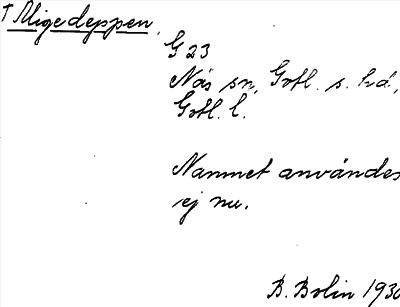 † Migedeppen.
G 23
Näs sn, Gotl. s. hd.,
Gotl. l.
Namnet användes
ej nu.
B. Bolin 1930